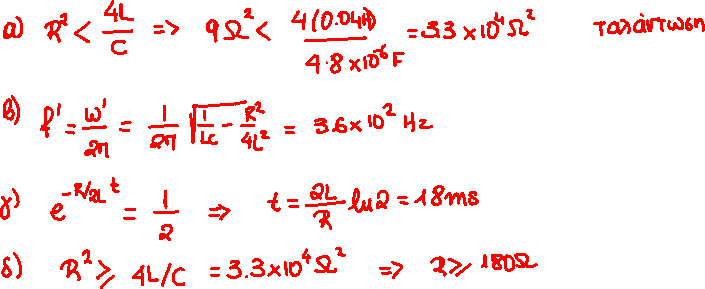 α) R² < 4L/C => 9Ω² < 4(0.04H)/4.8×10⁻⁶F = 3.3×10⁴Ω² ταλάντωση
β) f' = ω'/2π = 1/2π √(1/LC - R²/4L²) = 3.6×10² Hz
γ) e^(-R/2L t) = 1/2 => t = 2L/R ln2 = 18ms
δ) R² ≥ 4L/C = 3.3×10⁴Ω² => R ≥ 180Ω